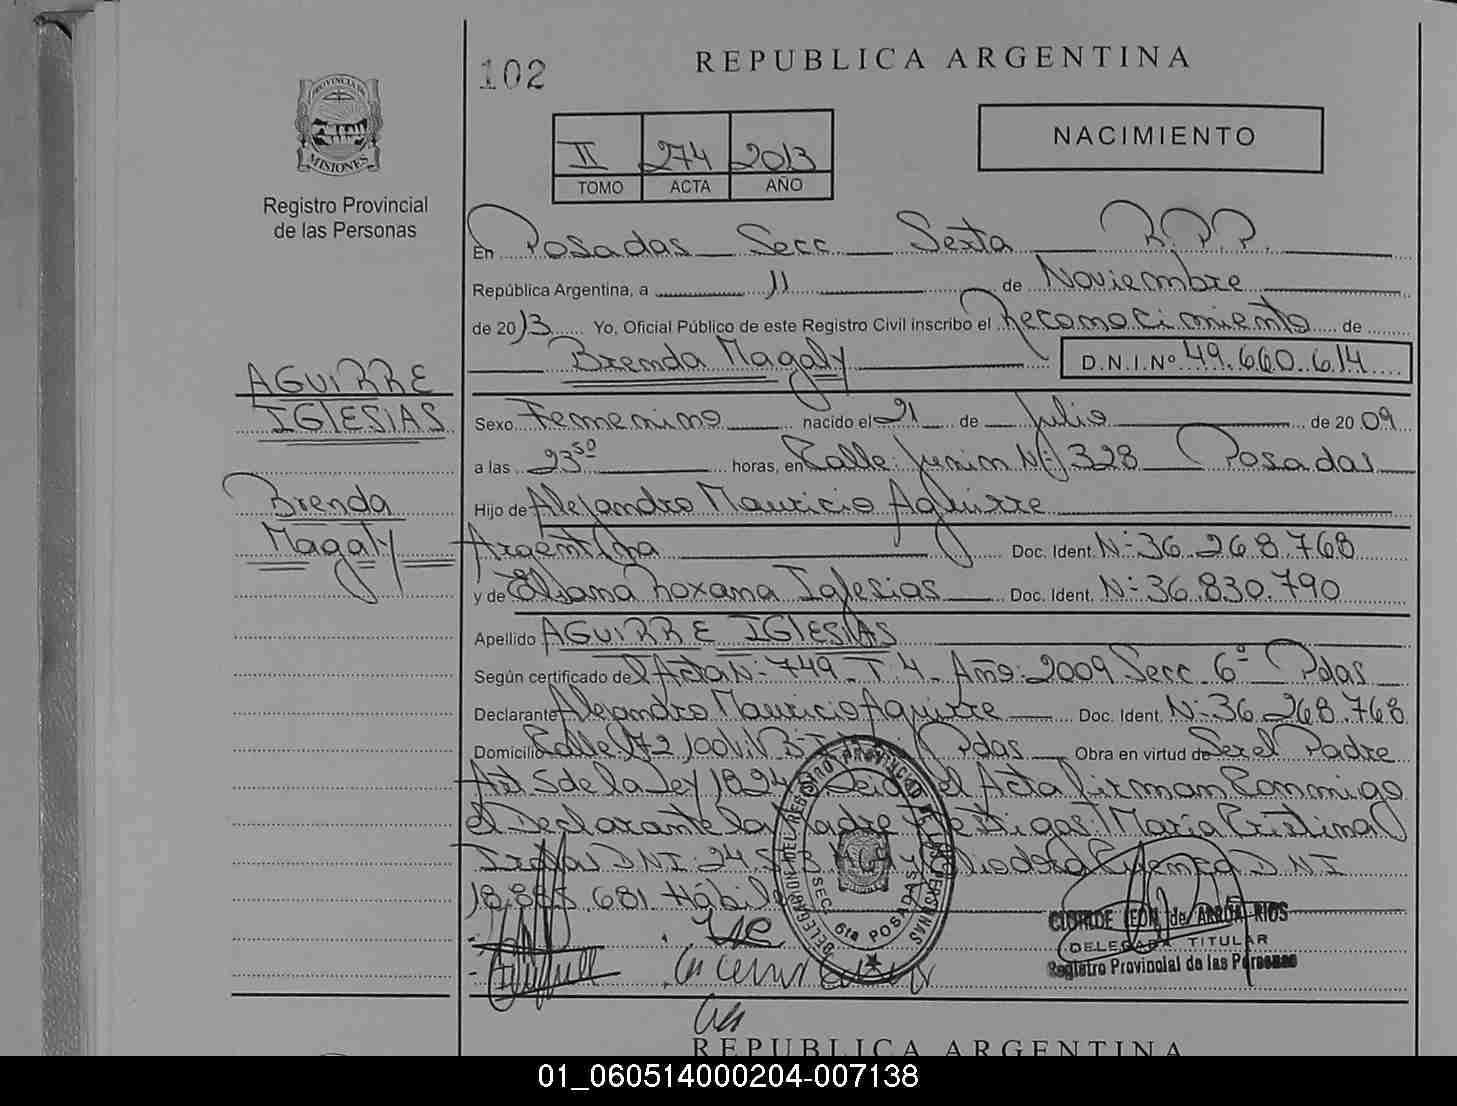 102
REPUBLICA ARGENTINA
PROVINCIA DE
MISIONES
Registro Provincial
de las Personas
II 274 2013
TOMO ACTA AÑO
NACIMIENTO
En Posadas Secc. Sexta R.P.P.
República Argentina, a 11 de Noviembre
de 2013 Yo, Oficial Público de este Registro Civil inscribo el Reconocimiento de
Brenda Magaly D.N.I. Nº 49.660.614
AGUIRRE
IGLESIAS
Brenda
Magaly
Sexo Femenino nacido el 21 de Julio de 2009
a las 23 50 horas, en Calle: Junin Nº: 328 Posadas
Hijo de Alejandro Mauricio Aguirre
Argentina Doc. Ident. Nº 36.268.768
y de Eliana Roxana Iglesias Doc. Ident. Nº 36.830.790
Apellido AGUIRRE IGLESIAS
Según certificado del Acta Nº 749 - T. 4 - Año: 2009 Secc. 6º Pdas
Declarante Alejandro Mauricio Aguirre Doc. Ident. Nº 36.268.768
Domicilio Calle 172 100 Viv. Pdas Obra en virtud de Ser el Padre
Art. 5 de la Ley 1824 Leida el Acta firman Conmigo
el Declarante la Madre Testigos: María Cristina
DNI: 24. Cuenca DNI
18.885.681 Hábil
DELEGACION DEL REGISTRO PROVINCIAL DE LAS PERSONAS
SEC. 6ta POSADAS
CLOTILDE LEON de ARRUA RIOS
DELEGADA TITULAR
Registro Provincial de las Personas
REPUBLICA ARGENTINA
01_060514000204-007138